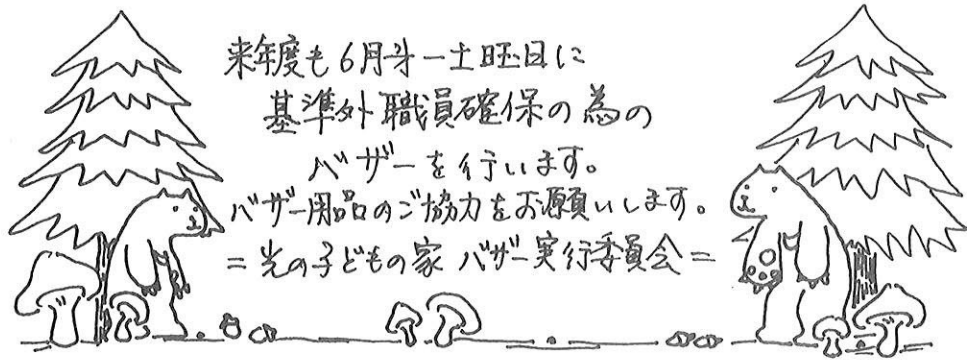 来年度も6月第一土曜日に
基準外職員確保の為の
バザーを行います。
バザー用品のご協力をお願いします。
=光の子どもの家 バザー実行委員会=